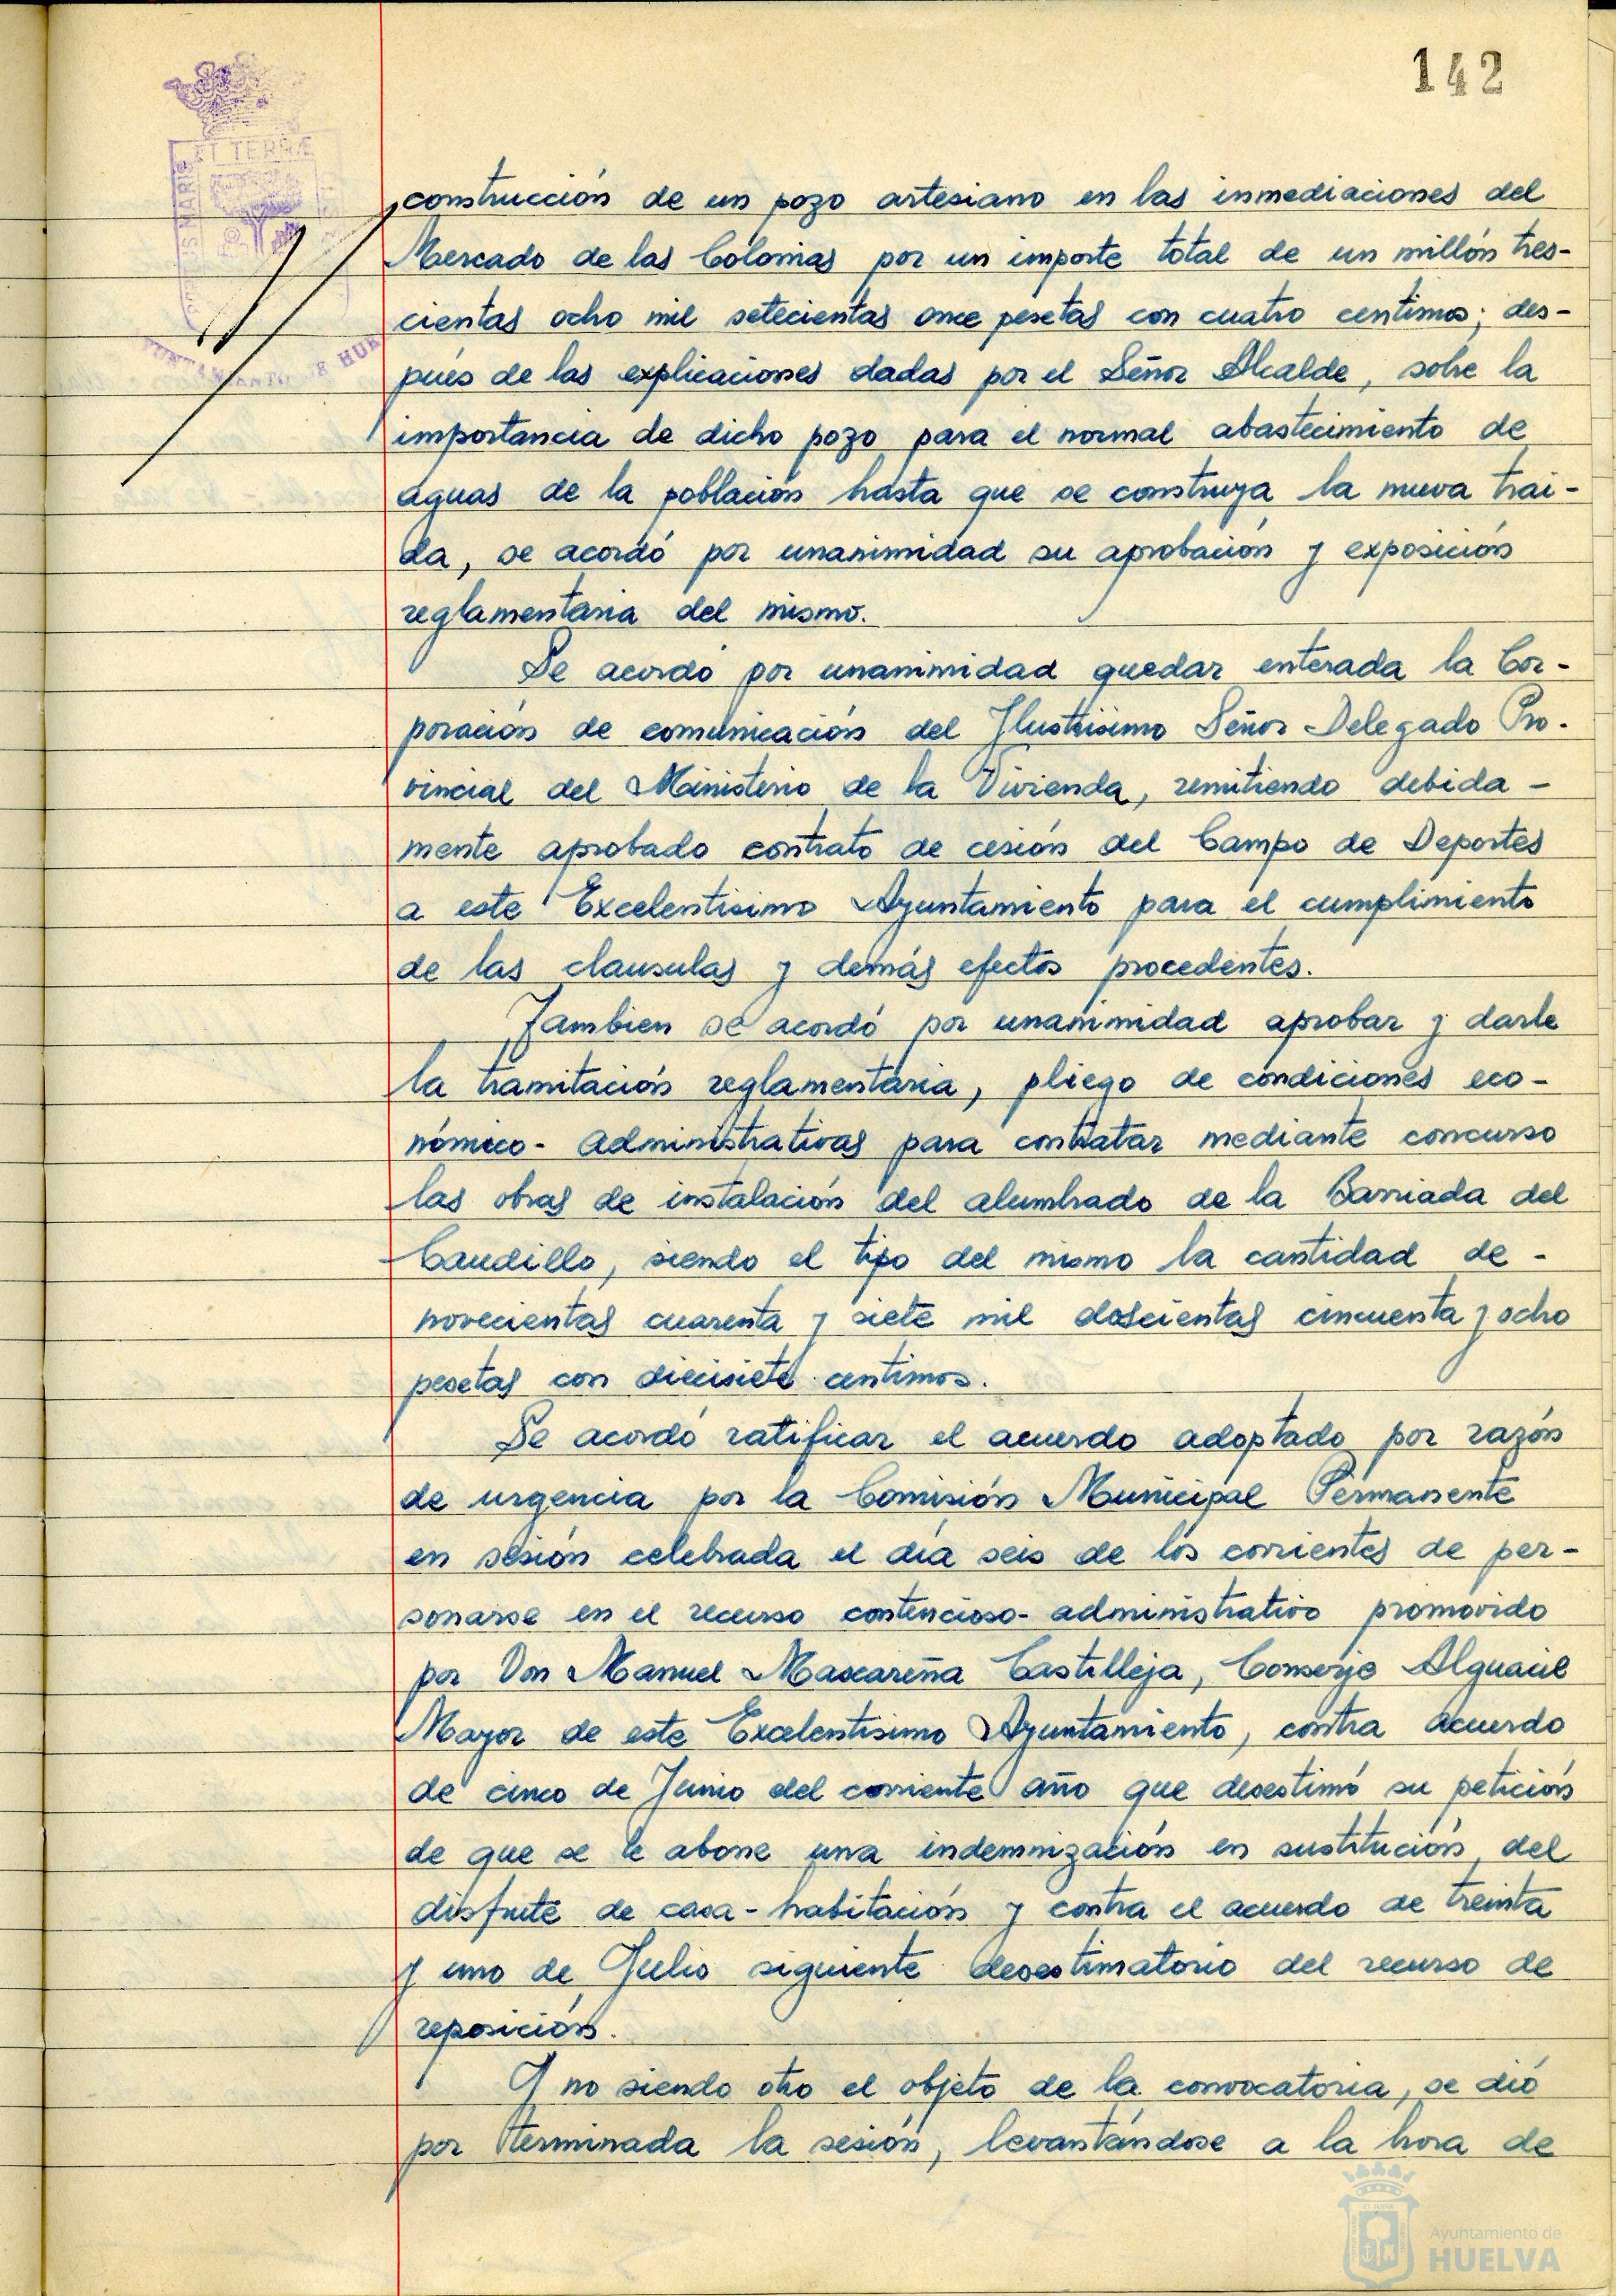 142
ET TERRÆ
PORTUS MARIS
AYUNTAMIENTO DE HUELVA
construcción de un pozo artesiano en las inmediaciones del
Mercado de las Colonias por un importe total de un millón tres-
cientas ocho mil setecientas once pesetas con cuatro centimos; des-
pués de las explicaciones dadas por el Señor Alcalde, sobre la
importancia de dicho pozo para el normal abastecimiento de
aguas de la población hasta que se construya la nueva trai-
da, se acordó por unanimidad su aprobación y exposición
reglamentaria del mismo.
Se acordó por unanimidad quedar enterada la Cor-
poración de comunicación del Ilustrisimo Señor Delegado Pro-
vincial del Ministerio de la Vivienda, remitiendo debida-
mente aprobado contrato de cesión del Campo de Deportes
a este Excelentisimo Ayuntamiento para el cumplimiento
de las clausulas y demás efectos procedentes.
Tambien se acordó por unanimidad aprobar y darle
la tramitación reglamentaria, pliego de condiciones eco-
nómico-administrativas para contratar mediante concurso
las obras de instalación del alumbrado de la Barriada del
Caudillo, siendo el tipo del mismo la cantidad de -
novecientas cuarenta y siete mil doscientas cincuenta y ocho
pesetas con diecisiete centimos.
Se acordó ratificar el acuerdo adoptado por razón
de urgencia por la Comisión Municipal Permanente
en sesión celebrada el día seis de los corrientes de per-
sonarse en el recurso contencioso-administrativo promovido
por Don Manuel Mascareña Castilleja, Conserje Alguacil
Mayor de este Excelentisimo Ayuntamiento, contra acuerdo
de cinco de Junio del corriente año que desestimó su petición
de que se le abone una indemnización en sustitución del
disfrute de casa-habitación y contra el acuerdo de treinta
y uno de Julio siguiente desestimatorio del recurso de
reposición.
Y no siendo otro el objeto de la convocatoria, se dió
por terminada la sesión, levantándose a la hora de
Ayuntamiento de
HUELVA